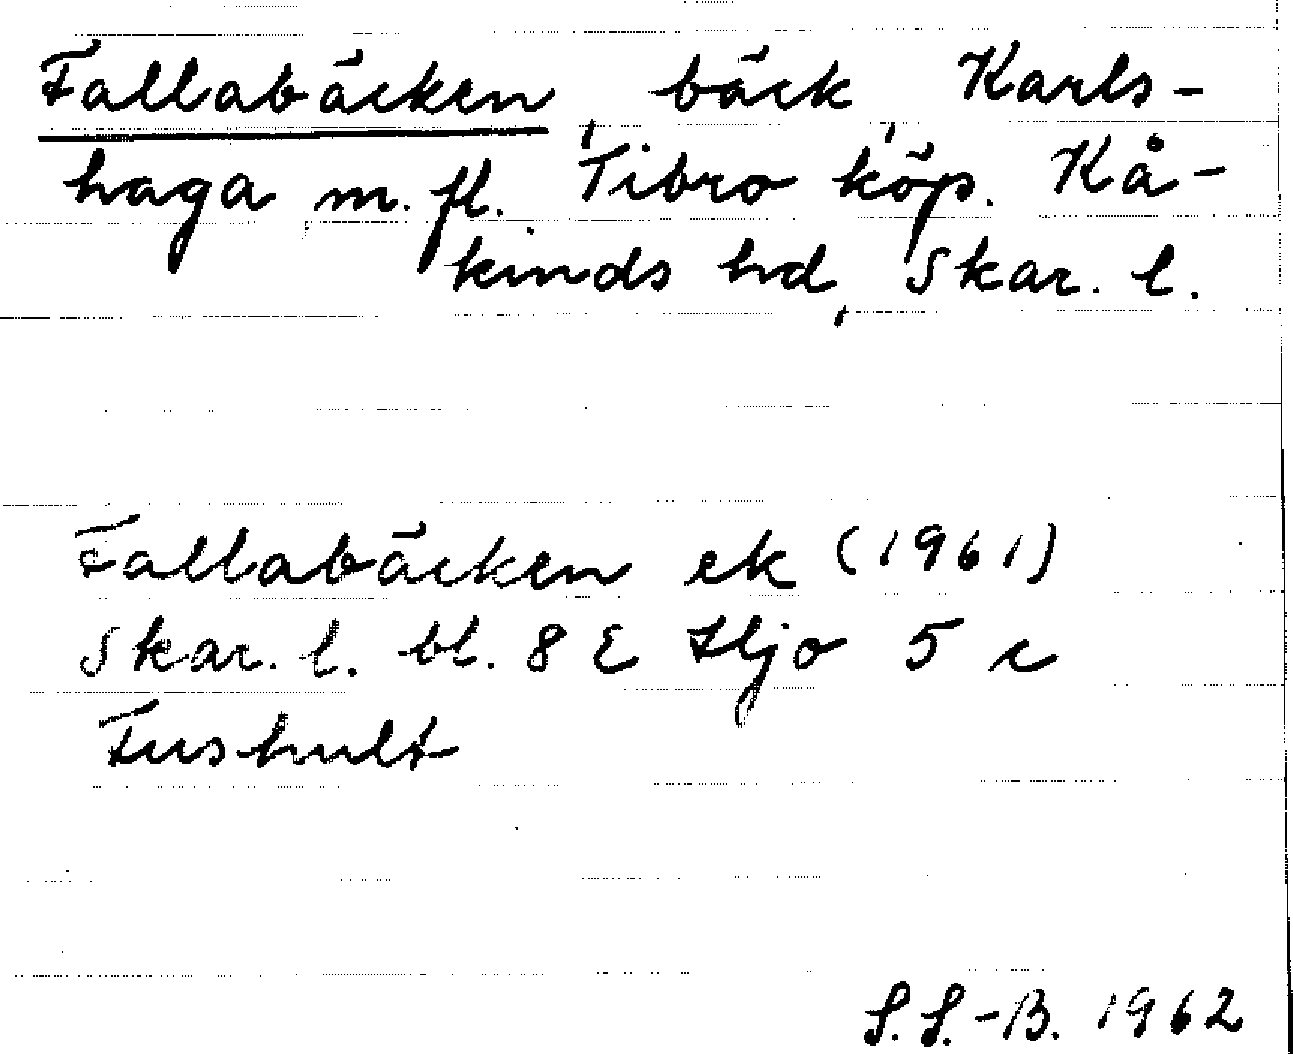 Fallabäcken, bäck, Karls-
haga m. fl. Tibro köp. Kå-
kinds hd, Skar. l.
Fallabäcken ek (1961)
Skar. l. bl. 8 E Hjo 5 c
Fushult
S.S.-B. 1962